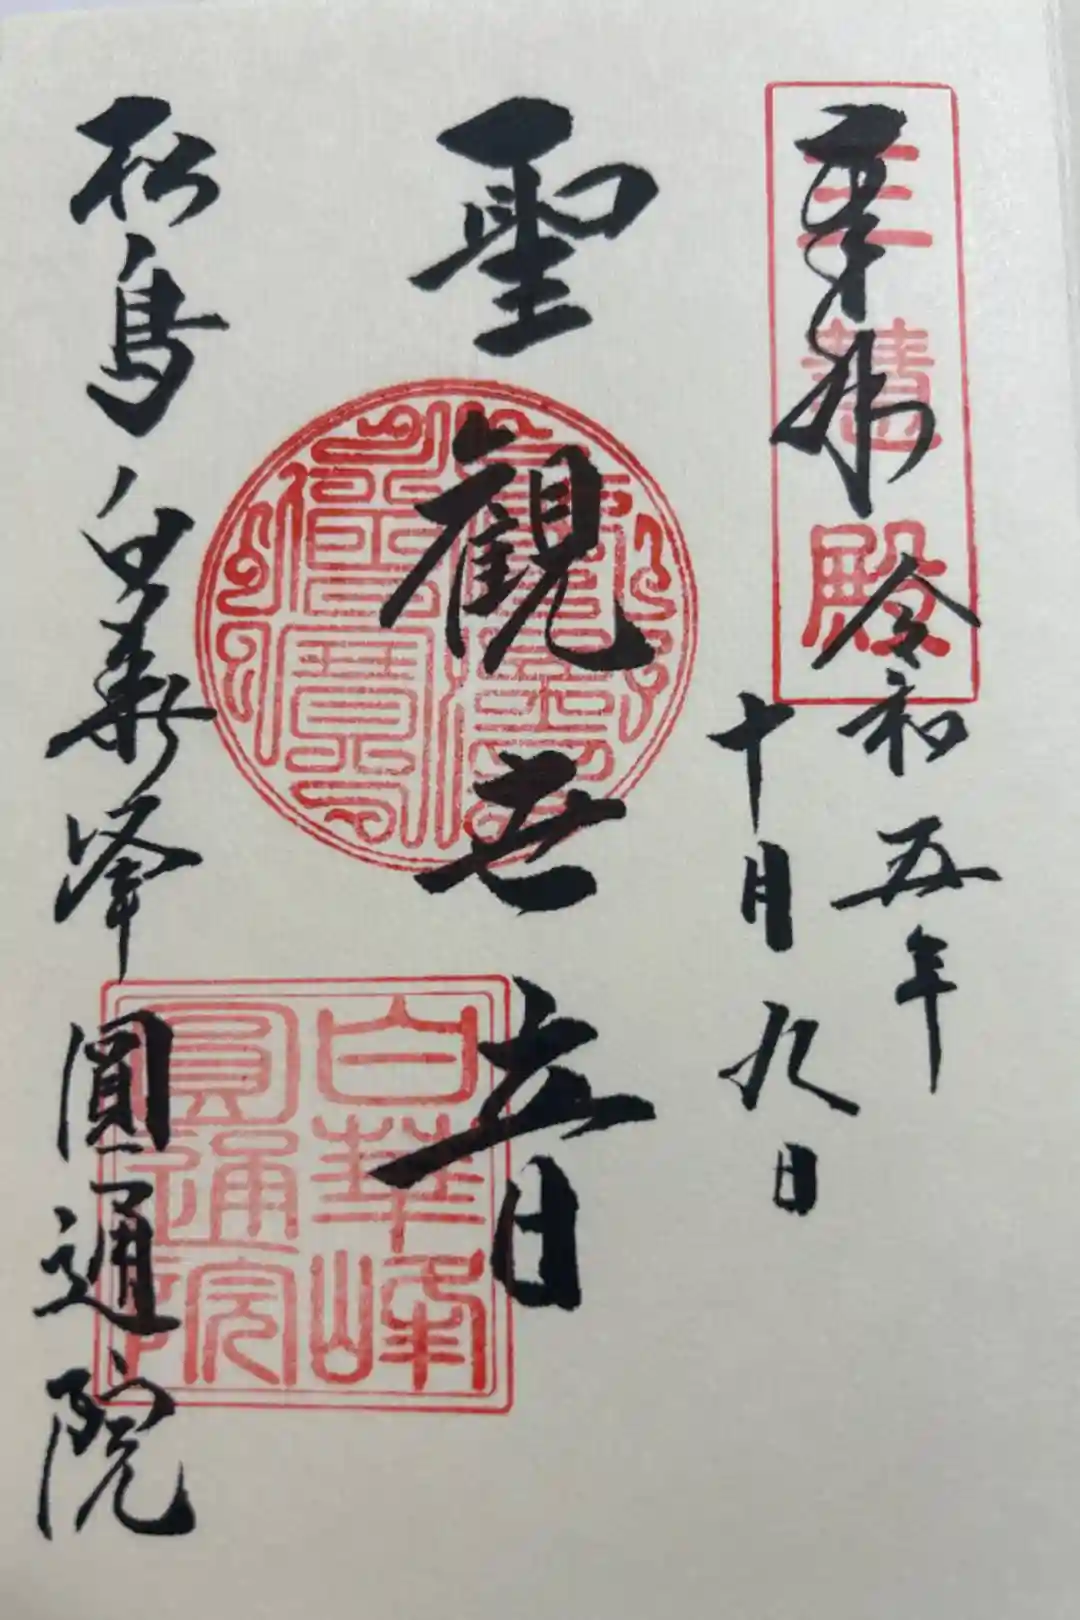 奉拝
三慧殿
令和五年
十月九日
聖観世音
松島白華峰圓通院
白華峰
圓通院